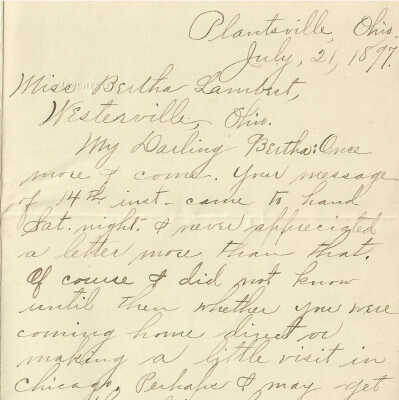 Plantsville, Ohio.
July, 21, 1897.
Miss Bertha Lambert,
Westerville, Ohio.
My Darling Bertha: Once
more I come. Your message
of 14th inst. came to hand
Sat. night. I never appreciated
a letter more than that.
Of course I did not know
until then whether you were
coming home direct or
making a little visit in
Chicago. Perhaps I may get